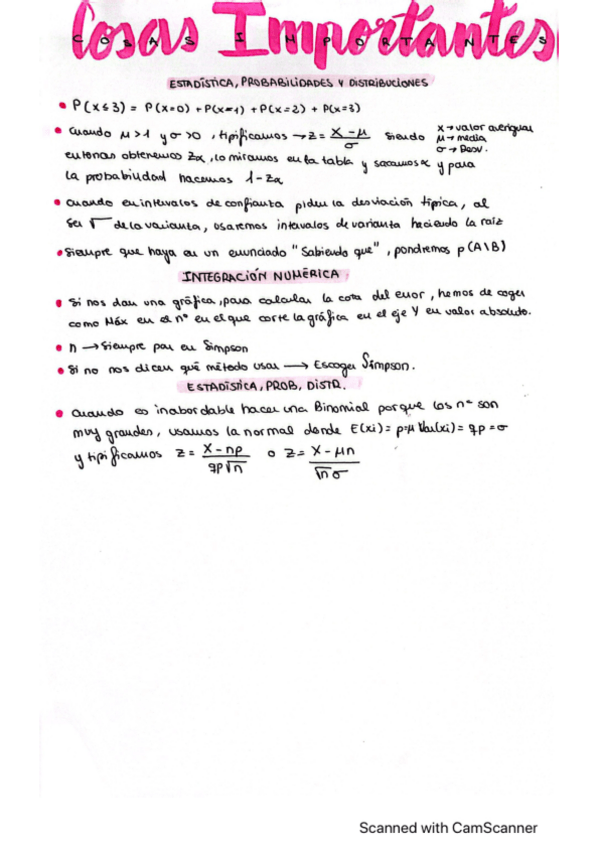 Cosas Importantes
COSAS IMPORTANTES
ESTADÍSTICA, PROBABILIDADES Y DISTRIBUCIONES
• P(x≤3) = P(x=0) + P(x=1) + P(x=2) + P(x=3)
• Cuando μ>1 y σ>0, tipificamos → z = (x-μ)/σ siendo x → valor averiguar
μ → media
σ → Desv.
entonces obtenemos Zα, lo miramos en la tabla y sacamos α y para
la probabilidad hacemos 1-Zα
• Cuando en intervalos de confianza piden la desviación típica, al
ser √ de la varianza, usaremos intervalos de varianza haciendo la raíz
• Siempre que haya en un enunciado "Sabiendo que", pondremos p(A\B)
INTEGRACIÓN NUMÉRICA
• Si nos dan una gráfica, para calcular la cota del error, hemos de coger
como Máx en el nº en el que corte la gráfica en el eje Y en valor absoluto.
• n → Siempre par en Simpson
• Si no nos dicen qué método usar → Escoger Simpson.
ESTADÍSTICA, PROB, DISTR.
• Cuando es inabordable hacer una Binomial porque los nº son
muy grandes, usamos la normal donde E(xi) = p=μ Var(xi) = qp = σ
y tipificamos z = (X-np)/(qp√n) o z = (X-μn)/(√n σ)
Scanned with CamScanner